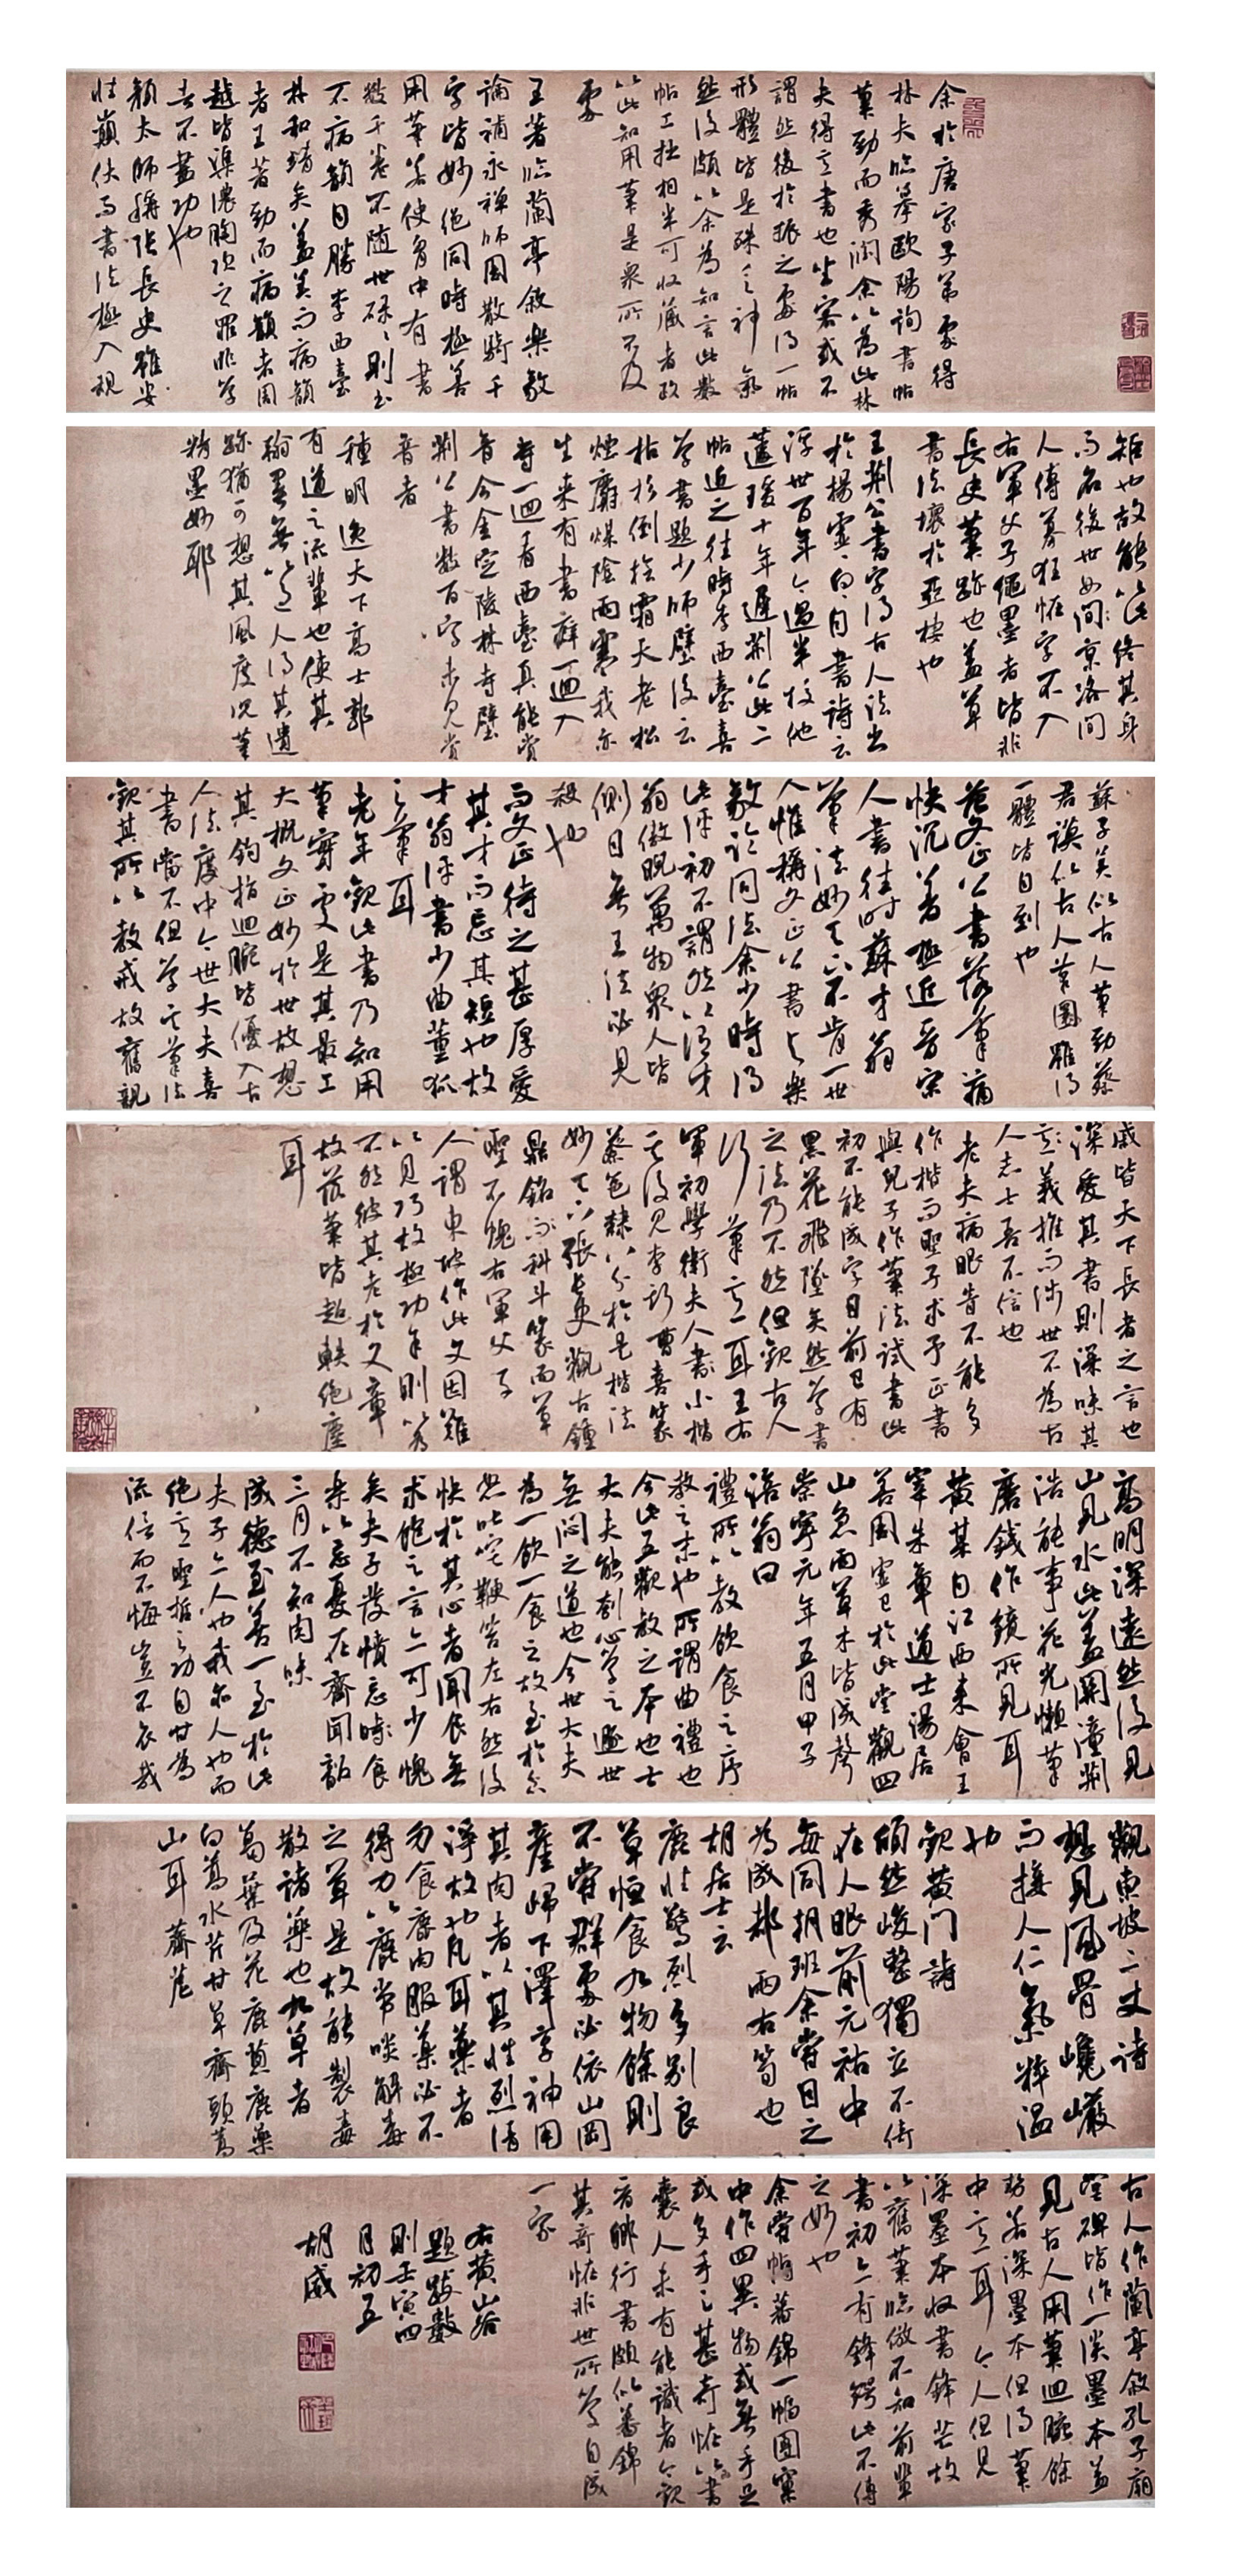 余於唐家子弟處得
林夫臨摹歐陽詢書帖
筆勁而秀潤余以為此林
夫得意書也坐客或不
謂然後於振之處得一帖
形體皆是殊乏神氣
然後頗以余為知言此數
帖工拙相半可收藏者政
以此知用筆是眾所不及
處
王著臨蘭亭敘樂毅
論補永禪師周散騎千
字皆妙絕同時極善
用筆若使胷中有書
數千卷不隨世碌碌則書
不病韻自勝李西臺
林和靖矣蓋美而病韻
者王著勁而病韻者周
越皆渠儂胸次之罪非學
者不盡功也
顏太師稱張長史雖姿
性顛佚而書法極入規
矩也故能以此終其身
而名後世如閒京洛間
人傳摹狂怪字不入
右軍父子繩墨者皆非
長史筆跡也蓋草
書法壞於亞棲也
王荊公書字得古人法出
於楊虛白白自書詩云
浮世百年今過半校他
蘧瑗十年遲荊公此二
帖近之往時李西臺喜
學書題少師壁後云
枯杉倒檜霜天老松
煙麝煤陰雨寒我亦
生來有書癖一迴入
寺一迴看西臺真能賞
音今金陵定林寺壁
荊公書數百字未見賞
音者
種明逸天下高士郭
有道之流輩也使其
翰墨無以過人得其遺
跡猶可想其風度況筆
精墨妙耶
蘇子美似古人筆勁蔡
君謨似古人筆圓雖得
一體皆自到也
范文正公書落筆痛
快沉著極近晉宋
人書往時蘇才翁
筆法妙天下不肯一世
人惟稱文正公書與樂
毅論同法余少時得
此評初不謂然以謂才
翁傲睨萬物眾人皆
側目無王法必見
殺也
而文正待之甚厚愛
其才而忘其短也故
才翁評書少曲董狐
之筆耳
老年觀此書乃知用
筆實處是其最工
大概文正妙於世故想
其鉤指迴腕皆優入古
人法度中今世大夫喜
書當不但學其筆法
觀其所以教戒故舊親
戚皆天下長者之言也
深愛其書則深味其
意義推而涉世不為古
人志士吾不信也
老夫病眼昏不能多
作楷而聖予求予正書
與兒子作筆法試書此
初不能成字目前已有
黑花飛墜矣然學書
之法乃不然但觀古人
行筆意耳王右
軍初學衛夫人書小楷
其後見李斯曹喜篆
蔡邕隸八分於是楷法
妙天下張長史觀古鐘
鼎銘而科斗篆而草
聖不愧右軍父子
人謂東坡作此文因難
以見巧故極功耳則以為
不然彼其老於文章
故落筆皆超軼絕塵
耳
高明深遠然後見
山見水此蓋關潼荊
浩能事花光懶筆
磨錢作鏡所見耳
黃某自江西來會王
宰朱章道士湯居
善周虛己於此堂觀四
山急雨草木皆成聲
崇寧元年五月甲子
涪翁曰
禮所以教飲食之序
教之末也所謂曲禮也
今此五觀教之本也士
大夫能刳心學之遯世
無悶之道也今世大夫
為一飲一食之故至於忿
怒叱咤鞭笞左右然後
快於其心者聞食無
求飽之言亦可少愧
矣夫子發憤忘食
樂以忘憂在齊聞韶
三月不知肉味
成德至善一至於此
夫子亦人也我亦人也而
絕意聖哲之功自甘為
流俗而不悔豈不哀哉
觀東坡二丈詩
想見風骨巉巖
而接人仁氣粹溫
也
觀黃門詩
頎然峻整獨立不倚
在人眼前元祐中
每同朝班余嘗目之
為成都兩石筍也
胡居士云
鹿性驚烈多別良
草恒食九物餘則
不嘗群處必依山岡
產歸下澤享神用
其肉者以其性烈清
淨故也凡耳藥者
勿食鹿肉服藥必不
得力以鹿常啖解毒
之草是故能製毒
散諸藥也九草者
葛葉及花鹿蔥鹿藥
白蒿水芹甘草齊頭蒿
山耳薺苨
古人作蘭亭敘孔子廟
堂碑皆作一淡墨本蓋
見古人用筆迴腕餘
勢若深墨本但得筆
中意耳今人但見
深墨本收書鋒芒故
以舊筆臨倣不知前輩
書初亦有鋒鍔此不傳
之妙也
余嘗帖蕃錦一幅團窠
中作四異物或無手足
或多手足甚奇怪以書
囊人未有能識者今觀
晉卿行書頗似蕃錦
其奇怪非世所學自成
一家
右黃山谷
題跋數
則壬寅四
月初五
胡威